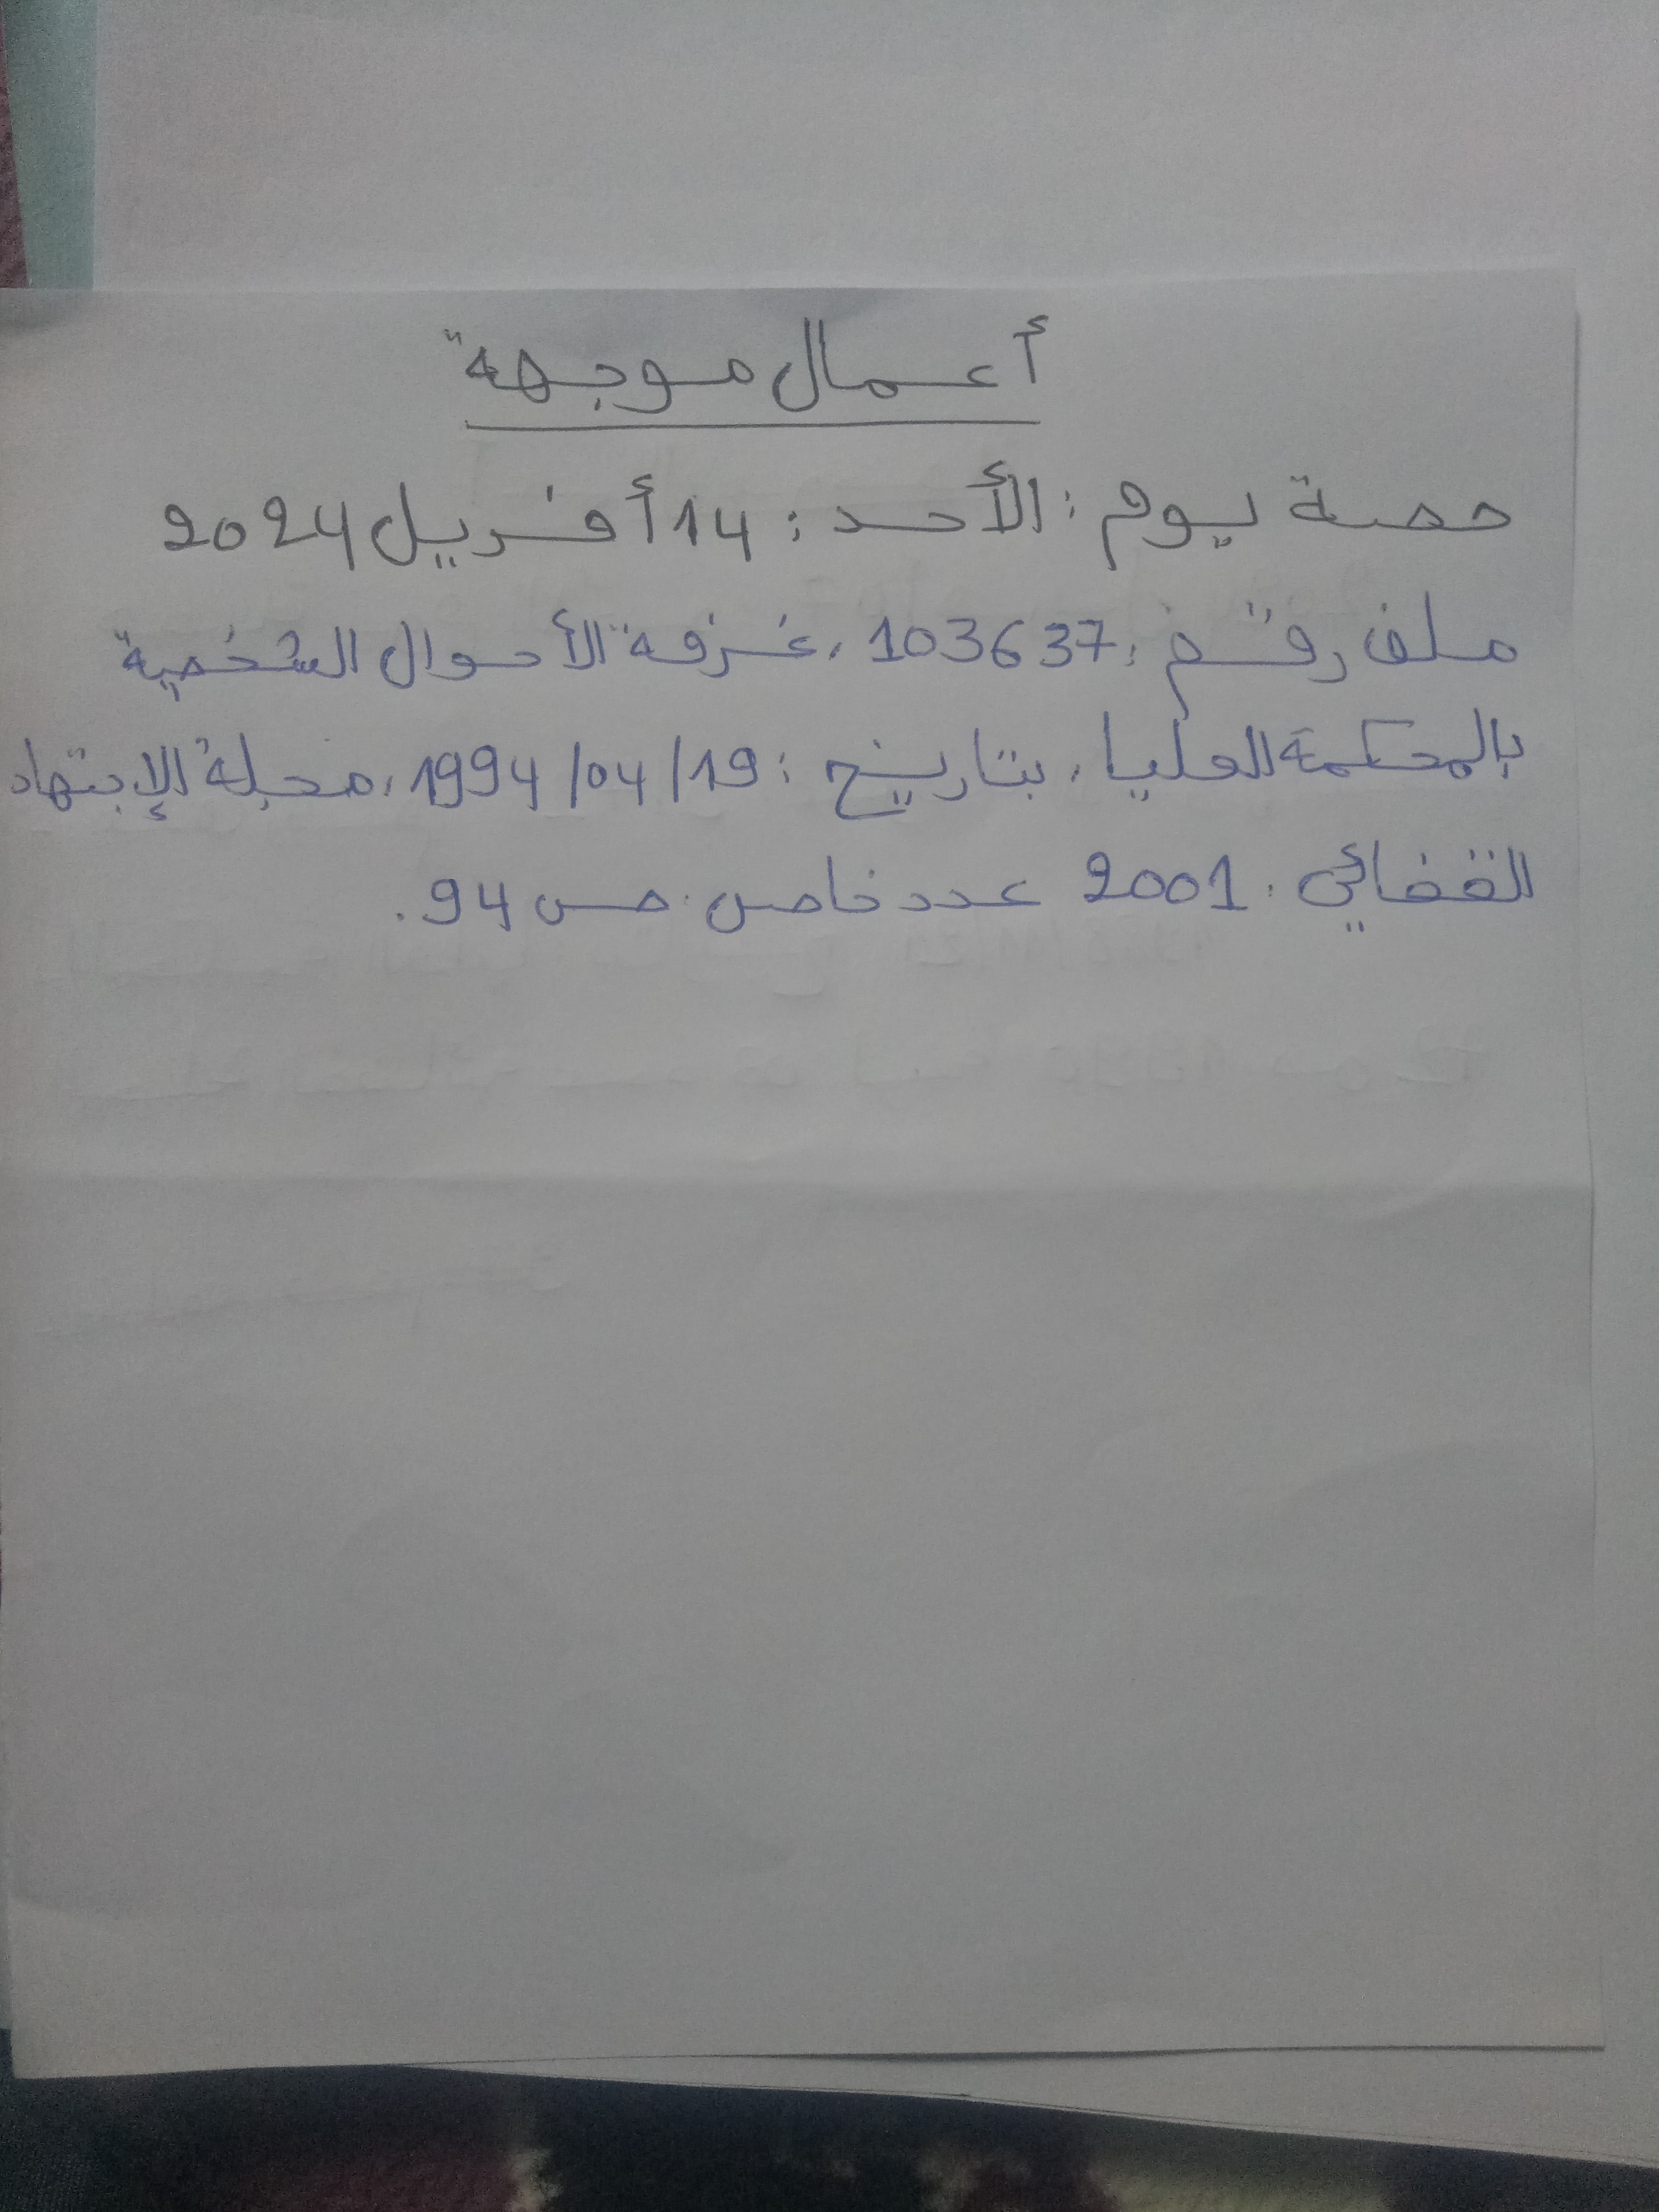 أعمال موجهة
حصة يوم : الأحد : 14 أفريل 2024
ملف رقم : 103637، غرفة الأحوال الشخصية
بالمحكمة العليا، بتاريخ : 19/04/1994، مجلة الإجتهاد
القضائي : 2001 عدد خاص ص 94.